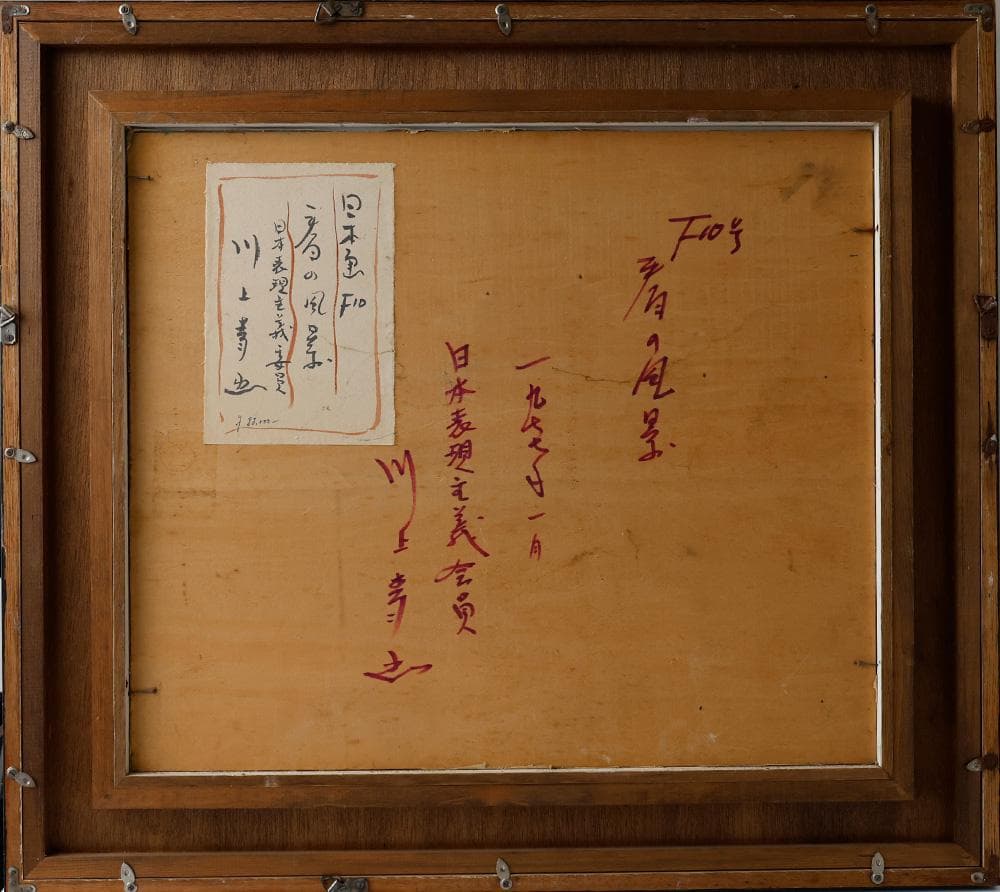 日本画 F10
春の風景
日本表現主義委員
川上
F10号
春の風景
一九七七年一月
日本表現主義会員
川上